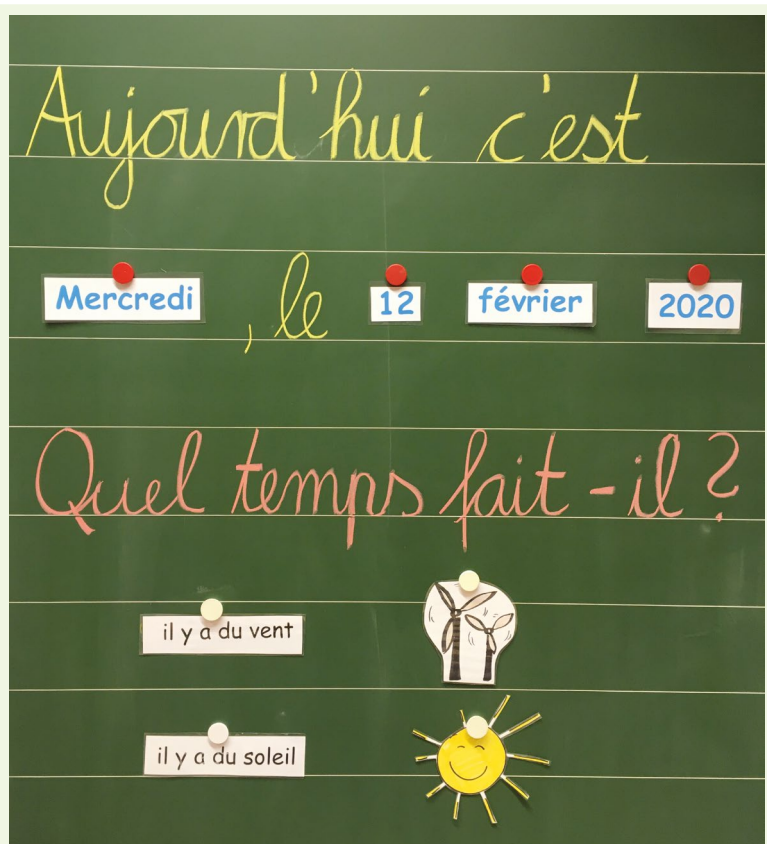 Aujourd'hui c'est
Mercredi , le 12 février 2020
Quel temps fait-il ?
il y a du vent
il y a du soleil